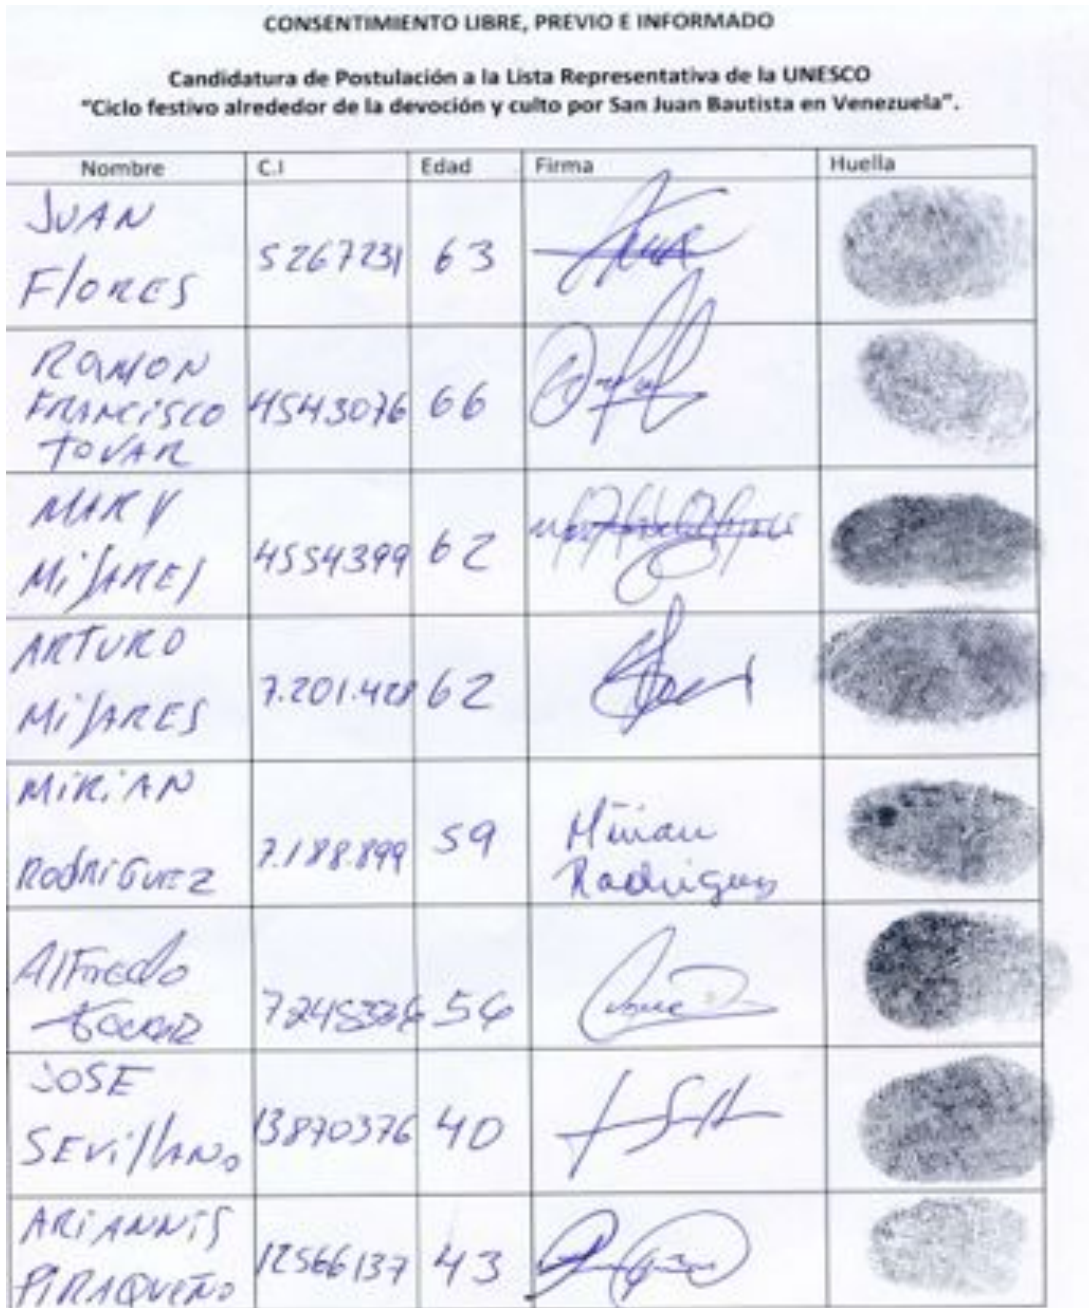 CONSENTIMIENTO LIBRE, PREVIO E INFORMADO
Candidatura de Postulación a la Lista Representativa de la UNESCO
"Ciclo festivo alrededor de la devoción y culto por San Juan Bautista en Venezuela".
Nombre C.I Edad Firma Huella
JUAN
FlORES 5267231 63
RAMON
FRANCISCO 4543076 66
TOVAR
MARY
MiJARES 4554399 62
ARTURO
MiJARES 7.201.428 62
MiRiAN
RODRiGUEZ 7.188.899 59 Mirian
Rodriguez
AlFredo
56
JOSE
SEVillANo 13870376 40
ARiANNiS
PiRAQUENO 12566137 43